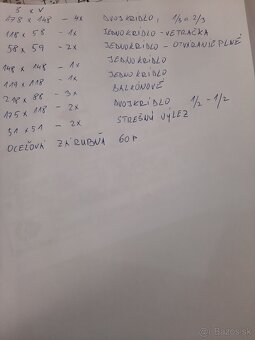 Š x V
178 x 148 - 4x DVOJKRÍDLO, 1/3 a 2/3
118 x 58 - 1x JEDNOKRÍDLO - VETRAČKA
58 x 59 - 2x JEDNOKRÍDLO - OTVARAVIE PLNÉ
148 x 148 - 1x JEDNOKRÍDLO
119 x 118 - 1x JEDNOKRÍDLO
218 x 88 - 3x BALKONOVÉ
175 x 118 - 2x DVOJKRÍDLO 1/2 - 1/2
51 x 51 - 2x STREŠNÝ VÝLEZ
OCEĽOVÁ ZÁRUBNA 60
© Bazos.sk